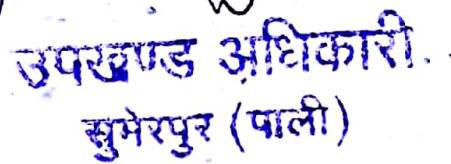 उपखण्ड अधिकारी.
सुमेरपुर (पाली)